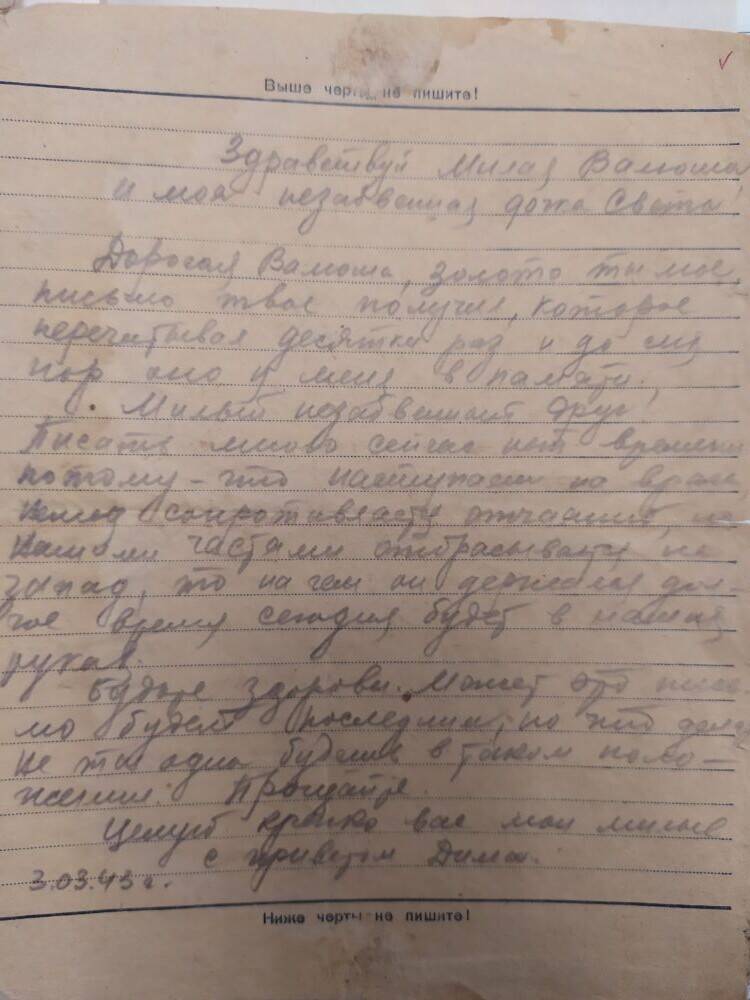 Выше черты не пишите!
Здравствуй Милая Валюша
и моя незабвенная дожа Света
Дорогая Валюша, золото ты мое,
письмо твое получил, которое
перечитывал десятки раз и до сих
пор оно у меня в памяти.
Милый незабвенный друг!
Писать много сейчас нет времени
потому-что наступаем на врага
немец сопротивляется отчаянно, но
нашими частями отбрасывается на
запад, то на чем он держался дол-
гое время сегодня будет в наших
руках.
Будьте здоровы. Может это пись-
мо будет последним, но что делать
не ты одна будешь в таком поло-
жении. Прощайте.
Целую крепко вас мои милые
с приветом Дима.
3.03.43 г.
Ниже черты не пишите!